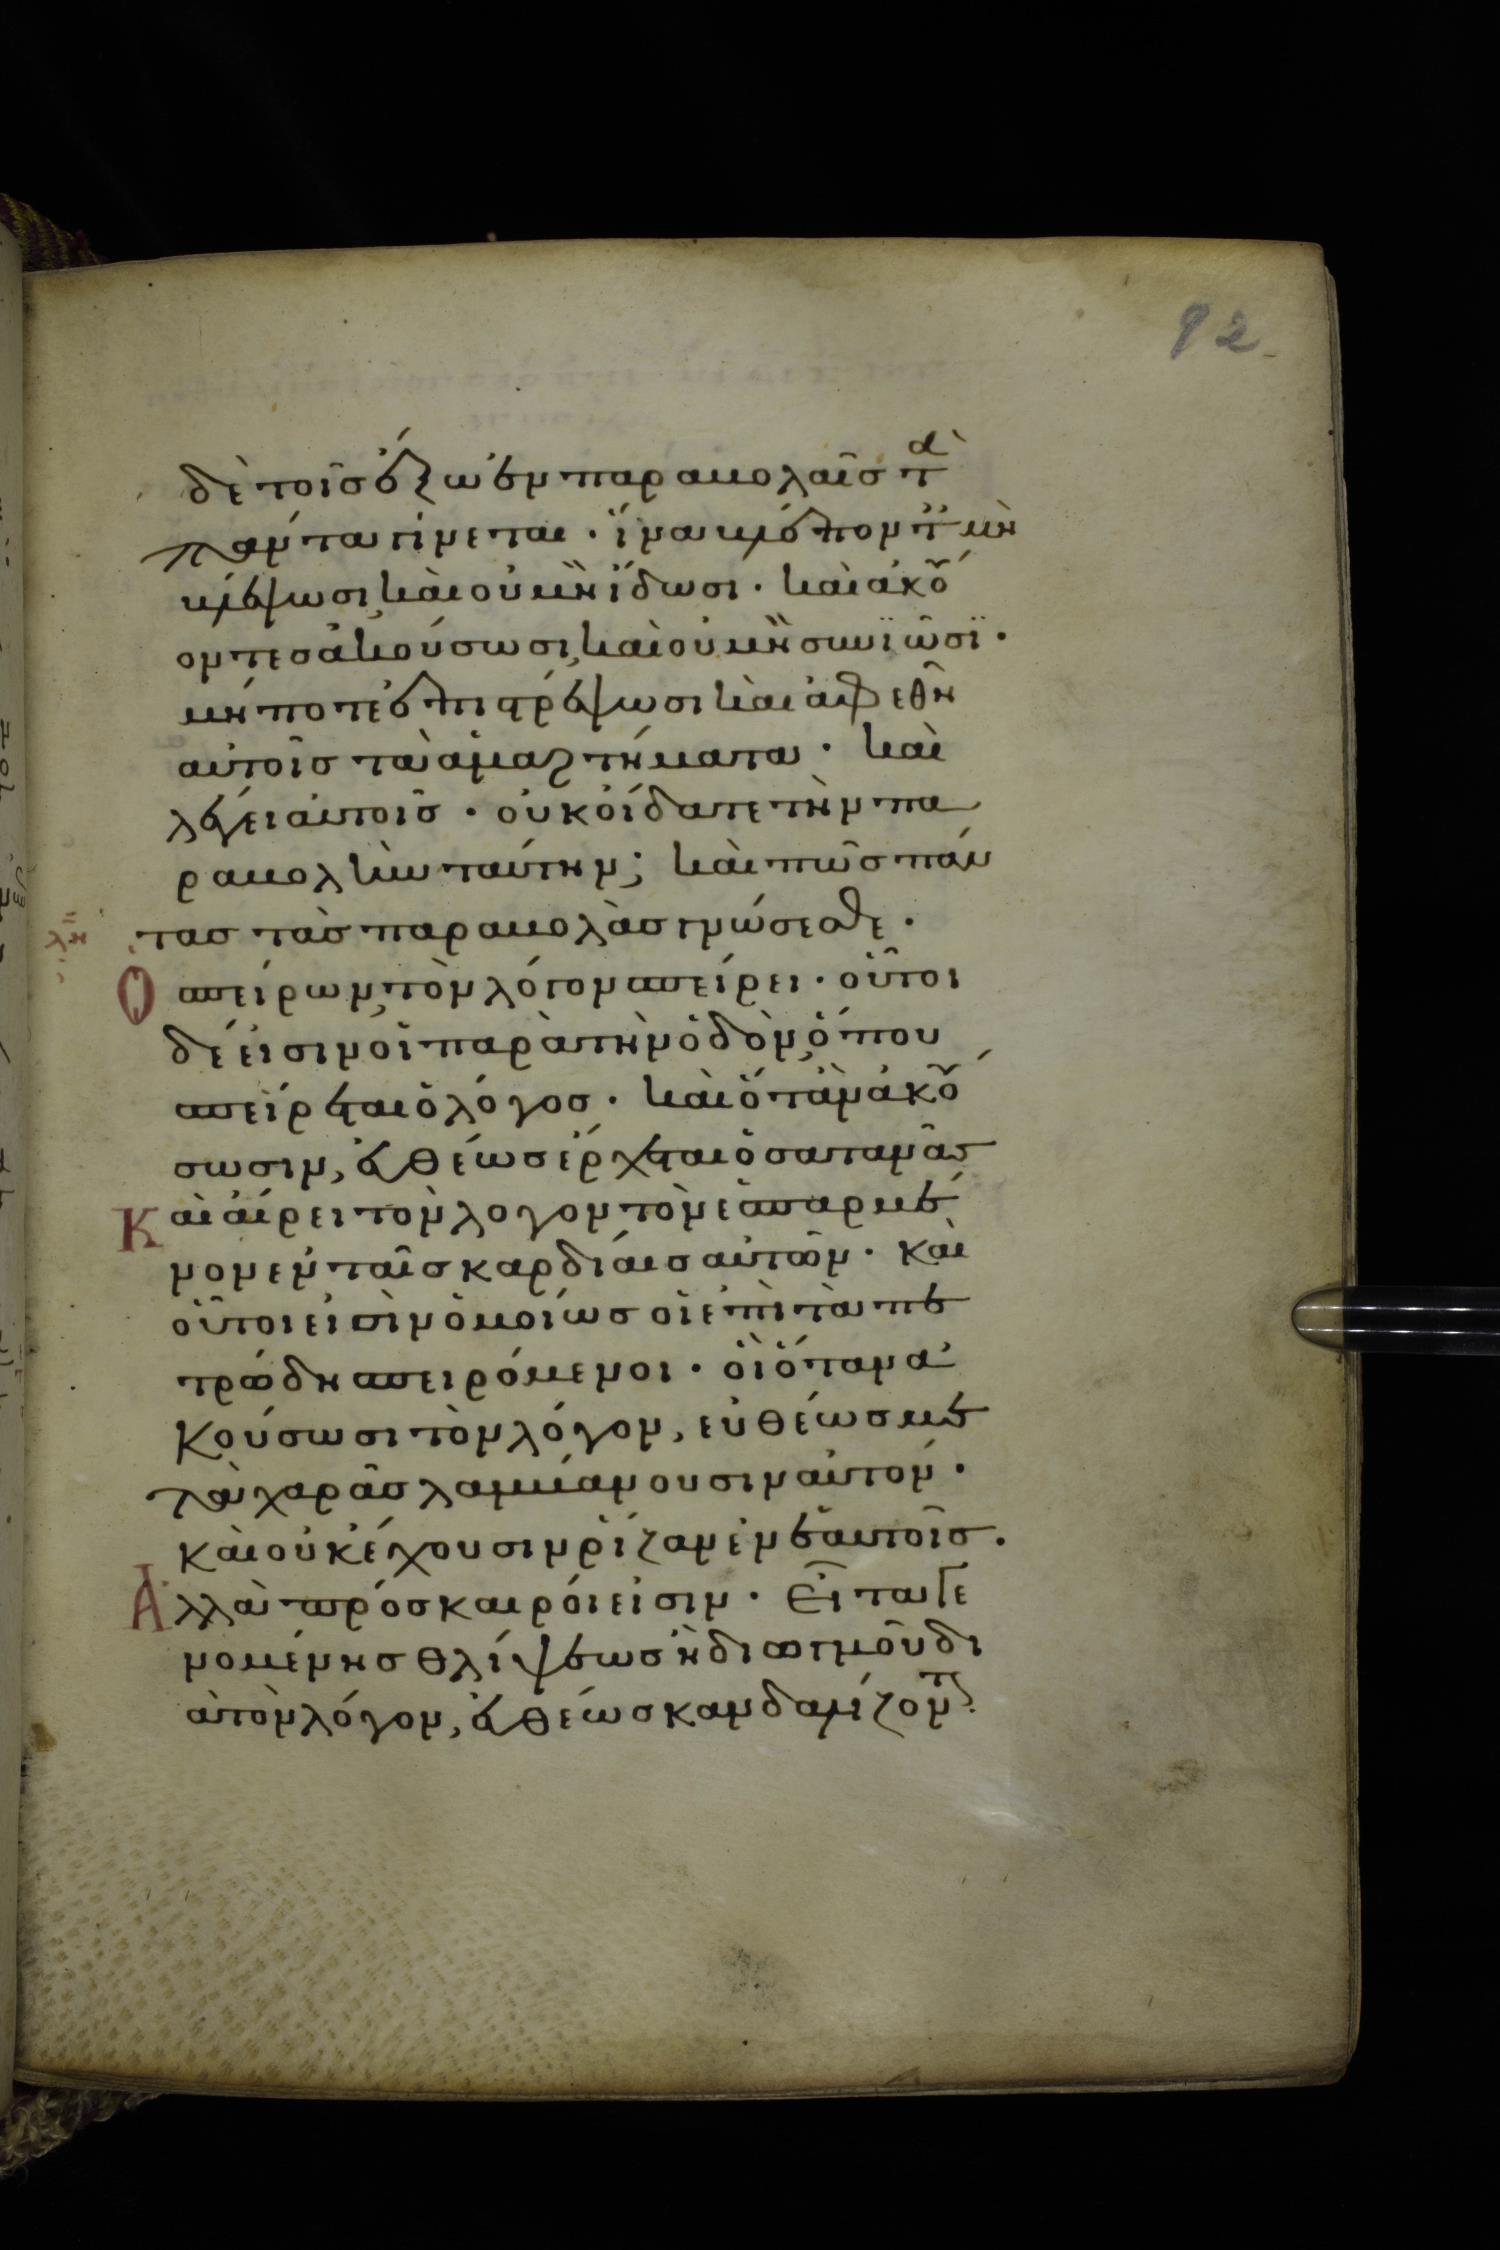 92
δὲ τοῖς ἔξω ἐν παραβολαῖς τὰ
πάντα γίνεται · ἵνα βλέποντ(ες) βλ
έψωσι, καὶ οὐ μὴ ἴδωσι · καὶ ἀκού
οντες ἀκούσωσι, καὶ οὐ μὴ συνϊῶσϊ ·
μήποτε ἐπιστρέψωσι καὶ ἀφεθῆ
αὐτοῖς τὰ ἁμαρτήματα · καὶ
λέγει αὐτοῖς · οὐκ οἴδατε τὴν πα
ραβολὴν ταύτην; καὶ πῶς πάν
τας τὰς παραβολὰς γνώσεσθε ·
Ὁ σπείρων, τὸν λόγον σπείρει · οὗτοι
δέ εἰσιν οἱ παρὰ τὴν ὁδὸν, ὅπου
σπείρεται ὁ λόγος · καὶ ὅταν ἀκού
σωσιν, εὐθέως ἔρχεται ὁ σατανᾶς
Καὶ αἴρει τὸν λογον τὸν ἐσπαρμέ
νον ἐν ταῖς καρδίαις αὐτῶν · καὶ
οὗτοι εἰσὶν ὁμοίως οἱ ἐπὶ τὰ πε
τρώδη σπειρόμενοι · οἳ ὅταν ἀ
κούσωσι τὸν λόγον, εὐθέως με
τὰ χαρᾶς λαμβάνουσιν αὐτόν ·
καὶ οὐκ ἔχουσιν ῥίζαν ἐν ἑαυτοῖς ·
Ἀλλὰ πρόσκαιροί εἰσιν · Εἶτα γε
νομένης θλίψεως ἢ διωγμοῦ δι
ὰ τὸν λόγον, εὐθέως σκανδαλίζοντ(αι)